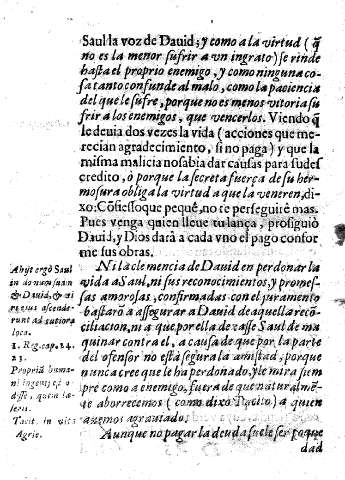 Saul la voz de Dauid; y como a la virtud ( q̃
no es la menor sufrir a vn ingrato) se rinde
hasta el proprio enemigo, y como ninguna co-
sa tanto confunde al malo, como la paciencia
del que le sufre, porque no es menos vitoria su-
frir a los enemigos, que vencerlos. Viendo q̃
le deuia dos vezes la vida ( acciones que me-
recian agradecimiento, si no paga) y que la
misma malicia no sabia dar causas para su des
credito, ò porque la secreta fuerça de su her-
mosura obliga la virtud a que la veneren, di-
xo: Cõfiesso que pequè, no te perseguirè mas.
Pues venga quien lleue tu lança, prosiguiò
Dauid, y Dios darà a cada vno el pago confor
me sus obras.
Ni la clemencia de Dauid en perdonar la
vida a Saul, ni sus reconocimientos, y promes-
sas amorosas, confirmadas con el juramento
bastarõ a assegurar a Dauid de aquella reco-
ciliacion, ni a que por ella dexasse Saul de ma
quinar contra el, a causa de que por la parte
del ofensor no està segura la amistad, porque
nunca cree que le ha perdonado, y le mira siem
pre como a enemigo, fuera de que naturalmẽ-
te aborrecemos ( como dixo Tacito) a quien
auemos agrauiado.
Aunque no pagar la deuda suele ser
dad
Abijt ergò Saul
in domum suam
& Dauid, & vi
ascende-
runt ad tutiora
loca.
1. Reg. cap. 24.
23.
Propriũ huma-
ni ingenij
odisse, quem læ-
seris.
Tacit. in vita
Agric.